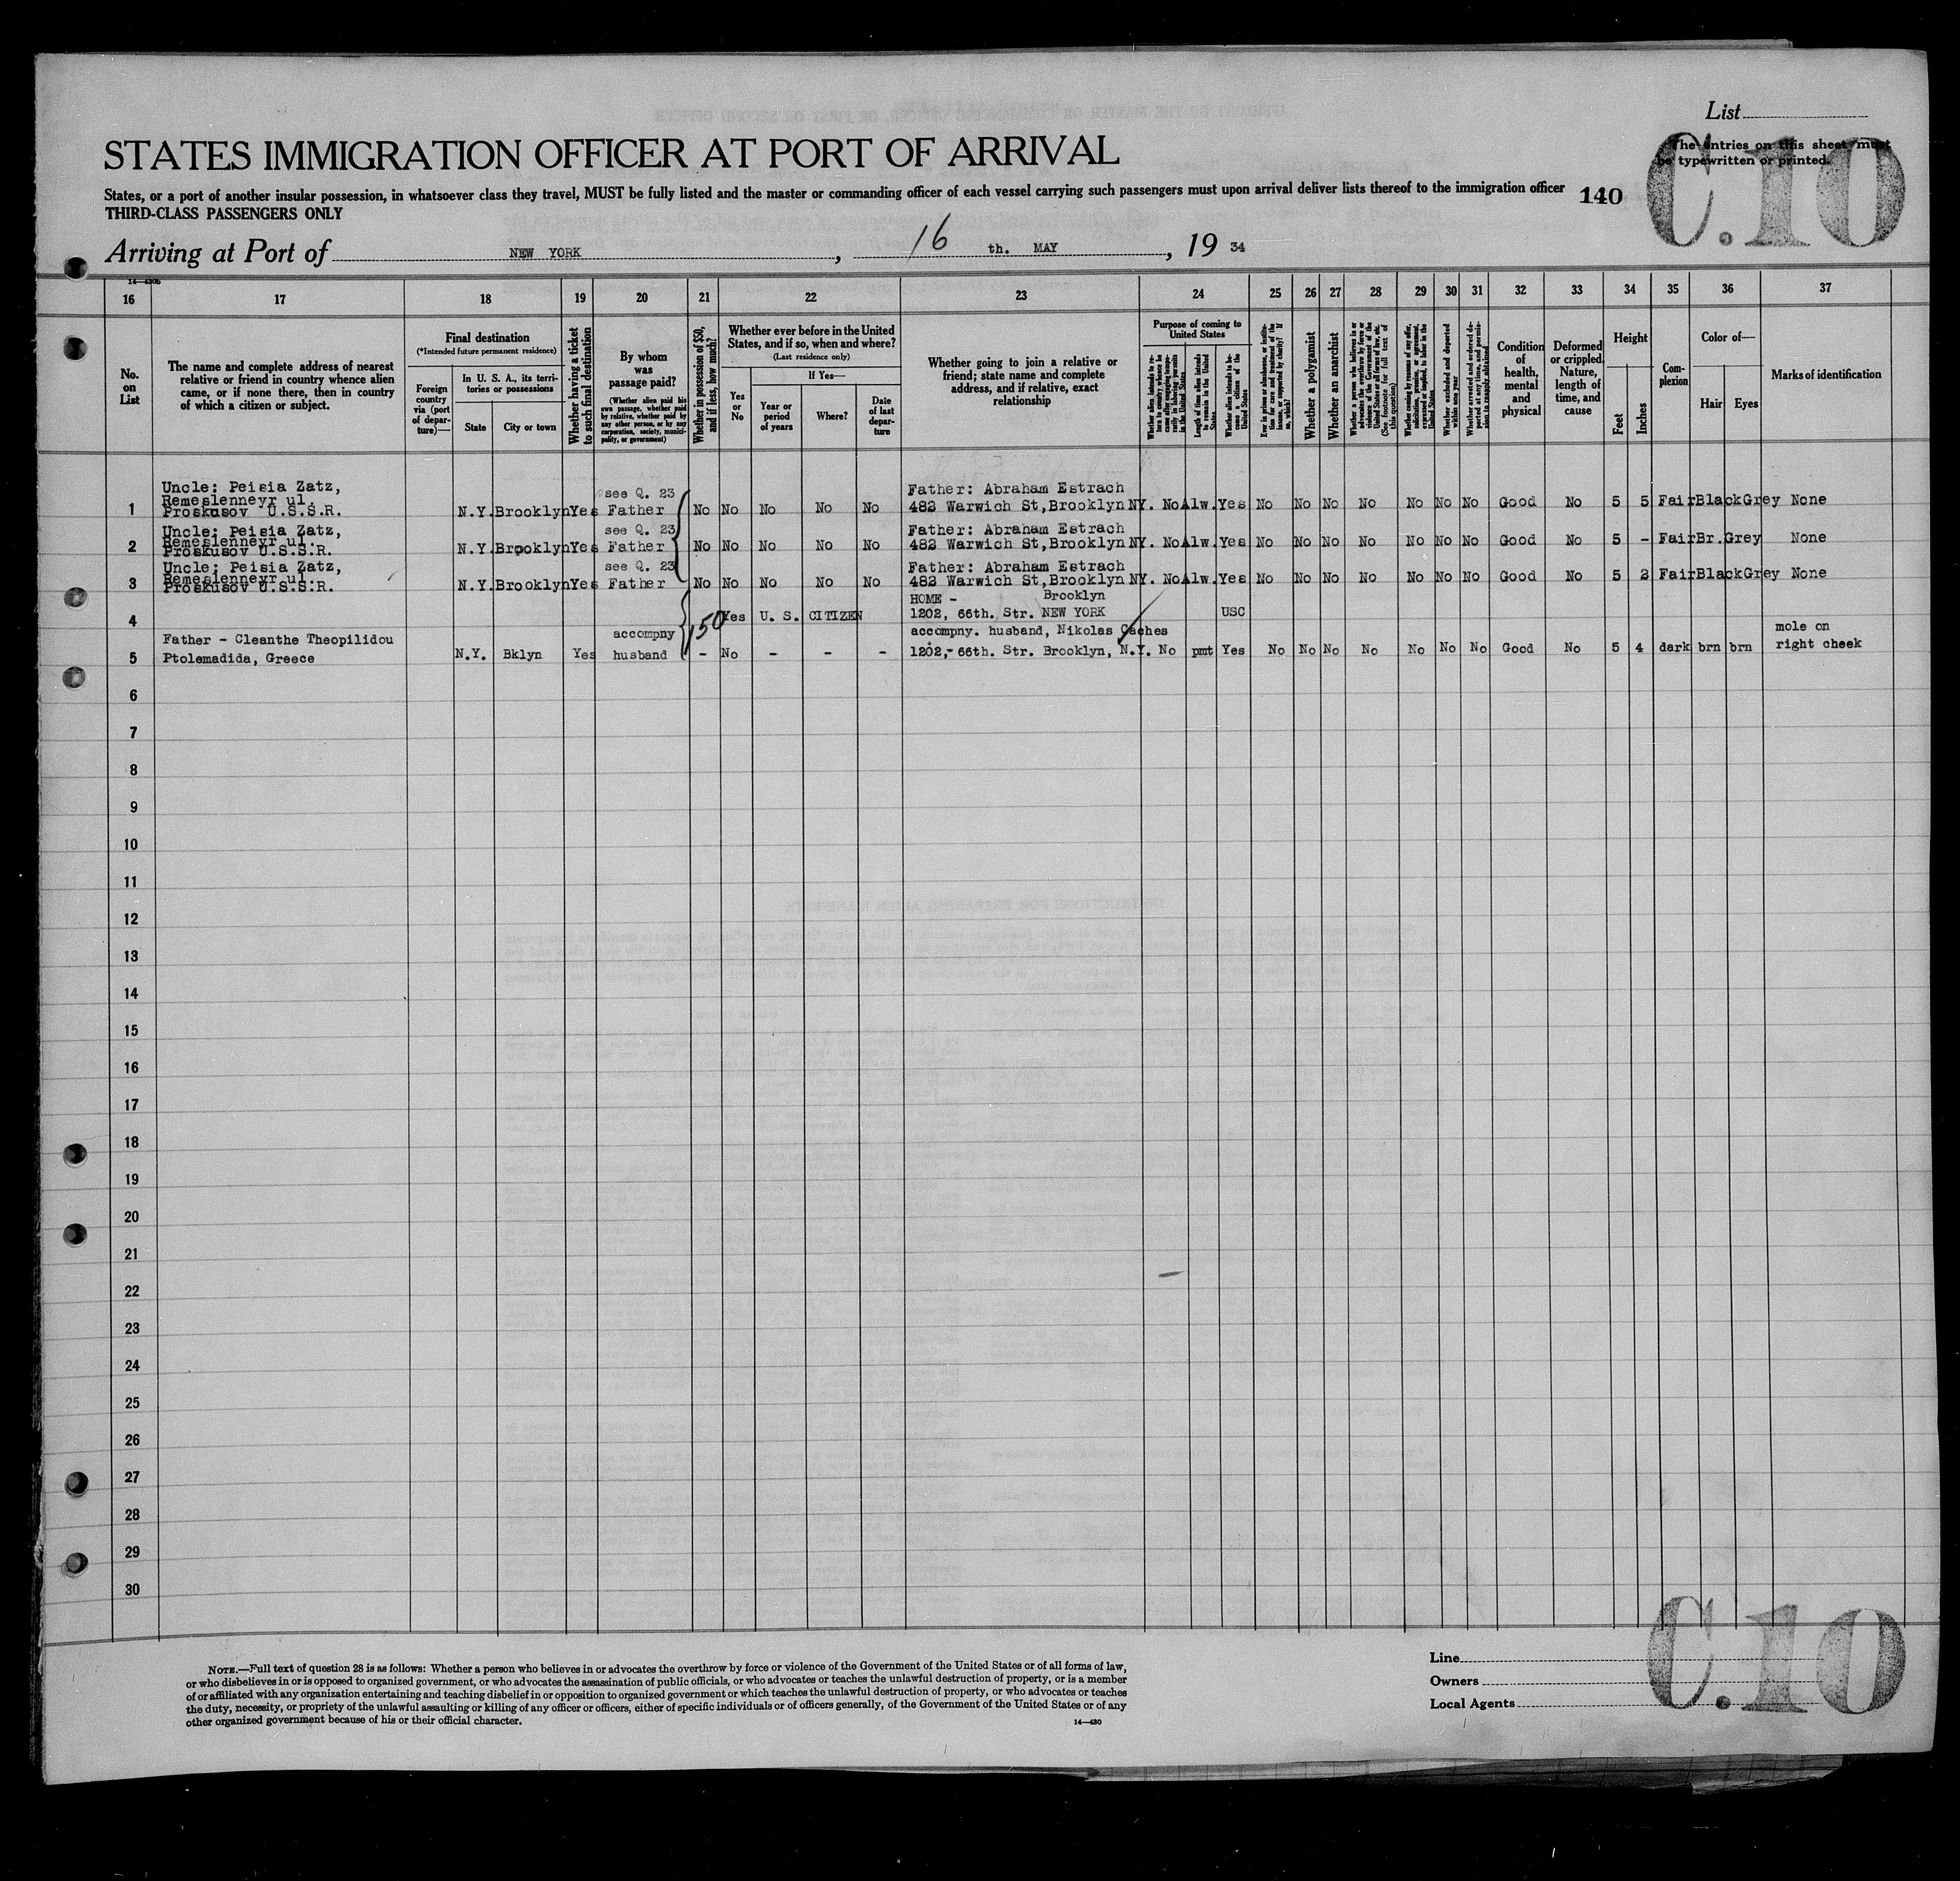 List
The entries on this sheet must
be typewritten or printed.
C.10
STATES IMMIGRATION OFFICER AT PORT OF ARRIVAL
States, or a port of another insular possession, in whatsoever class they travel, MUST be fully listed and the master or commanding officer of each vessel carrying such passengers must upon arrival deliver lists thereof to the immigration officer
140
THIRD-CLASS PASSENGERS ONLY
Arriving at Port of NEW YORK, 16 th. MAY, 19 34
14—430b
16 17 18 19 20 21 22 23 24 25 26 27 28 29 30 31 32 33 34 35 36 37
No. on List
The name and complete address of nearest relative or friend in country whence alien came, or if none there, then in country of which a citizen or subject.
Final destination
(*Intended future permanent residence)
Foreign country via (port of departure)—
In U. S. A., its territories or possessions
State
City or town
Whether having a ticket to such final destination
By whom was passage paid?
(Whether alien paid his own passage, whether paid by relative, whether paid by any other person, or by any corporation, society, municipality, or government)
Whether in possession of $50, and if less, how much?
Whether ever before in the United States, and if so, when and where?
(Last residence only)
Yes or No
If Yes—
Year or period of years
Where?
Date of last departure
Whether going to join a relative or friend; state name and complete address, and if relative, exact relationship
Purpose of coming to United States
Whether alien intends to return to country whence he came after engaging temporarily in laboring pursuits in the United States
Length of time alien intends to remain in the United States
Whether alien intends to become a citizen of the United States
Ever in prison or almshouse, or institution for care and treatment of the insane, or supported by charity? If so, which?
Whether a polygamist
Whether an anarchist
Whether a person who believes in or advocates the overthrow by force or violence of the Government of the United States or all forms of law, etc. (See footnote for full text of this question)
Whether coming by reason of any offer, solicitation, promise, or agreement, expressed or implied, to labor in the United States
Whether excluded and deported within one year
Whether arrested and ordered deported at any time, and permission to reapply obtained
Condition of health, mental and physical
Deformed or crippled. Nature, length of time, and cause
Height
Feet
Inches
Complexion
Color of—
Hair
Eyes
Marks of identification
Uncle: Peisia Zatz,
Remeslenneyr ul. see Q. 23 Father: Abraham Estrach
1 Proskusov U.S.S.R. N.Y. Brooklyn Yes Father No No No No No 482 Warwich St, Brooklyn NY. No Alw. Yes No No No No No No No Good No 5 5 Fair Black Grey None
Uncle: Peisia Zatz,
Remeslenneyr ul. see Q. 23 Father: Abraham Estrach
2 Proskusov U.S.S.R. N.Y. Brooklyn Yes Father No No No No No 482 Warwich St, Brooklyn NY. No Alw. Yes No No No No No No No Good No 5 - Fair Br. Grey None
Uncle: Peisia Zatz,
Remeslenneyr ul. see Q. 23 Father: Abraham Estrach
3 Proskusov U.S.S.R. N.Y. Brooklyn Yes Father No No No No No 482 Warwich St, Brooklyn NY. No Alw. Yes No No No No No No No Good No 5 2 Fair Black Grey None
HOME - Brooklyn
4 150 Yes U. S. CITIZEN 1202, 66th. Str. NEW YORK USC
Father - Cleanthe Theopilidou accompny accompny. husband, Nikolas Caches mole on
5 Ptolemadida, Greece N.Y. Bklyn Yes husband - No - - - 1202,- 66th. Str. Brooklyn, N.Y. No pmt Yes No No No No No No No Good No 5 4 dark brn brn right cheek
6
7
8
9
10
11
12
13
14
15
16
17
18
19
20
21
22
23
24
25
26
27
28
29
30
NOTE.—Full text of question 28 is as follows: Whether a person who believes in or advocates the overthrow by force or violence of the Government of the United States or of all forms of law,
or who disbelieves in or is opposed to organized government, or who advocates the assassination of public officials, or who advocates or teaches the unlawful destruction of property, or is a member
of or affiliated with any organization entertaining and teaching disbelief in or opposition to organized government or which teaches the unlawful destruction of property, or who advocates or teaches
the duty, necessity, or propriety of the unlawful assaulting or killing of any officer or officers, either of specific individuals or of officers generally, of the Government of the United States or of any
other organized government because of his or their official character.
14—430
Line
Owners
Local Agents
C.10